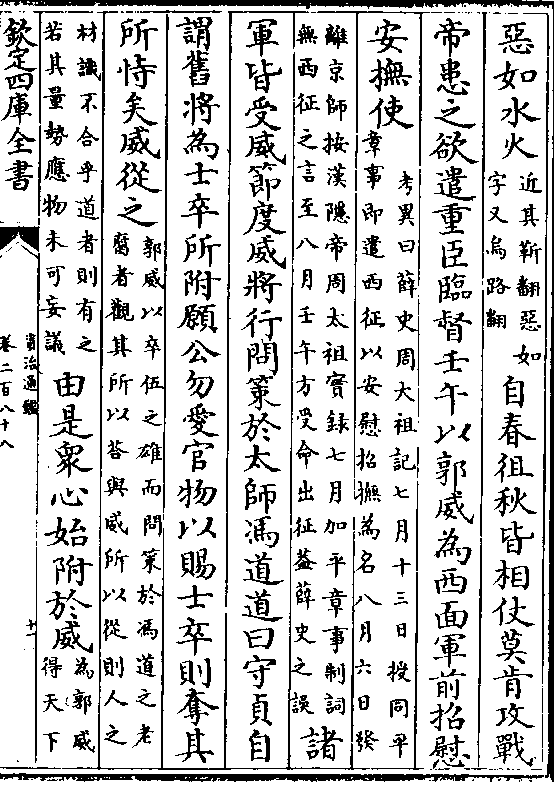 惡如水火
近其靳翻惡如
字又烏路翻
自春徂秋皆相仗莫肯攻戰
帝患之欲遣重臣臨督壬午以郭威為西面軍前招慰
安撫使
考異曰薛史周大祖記七月十三日授同平
章事即遣西征以安慰招撫為名八月六日發
離京師按漢隱帝周太祖實録七月加平章事制詞
無西征之言至八月壬午方受命出征蓋薛史之誤
諸
軍皆受威節度威將行問策於太師馮道道曰守貞自
謂舊將為士卒所附願公勿愛官物以賜士卒則奪其
所恃矣威從之
郭威以卒伍之雄而問策於馮道之老
腐者觀其所以荅與威所以從則人之
材識不合乎道者則有之
若其量勢應物未可妄議
由是衆心始附於威
為郭威
得天下
欽定四庫全書
資治通鑑
卷二百八十八
十一